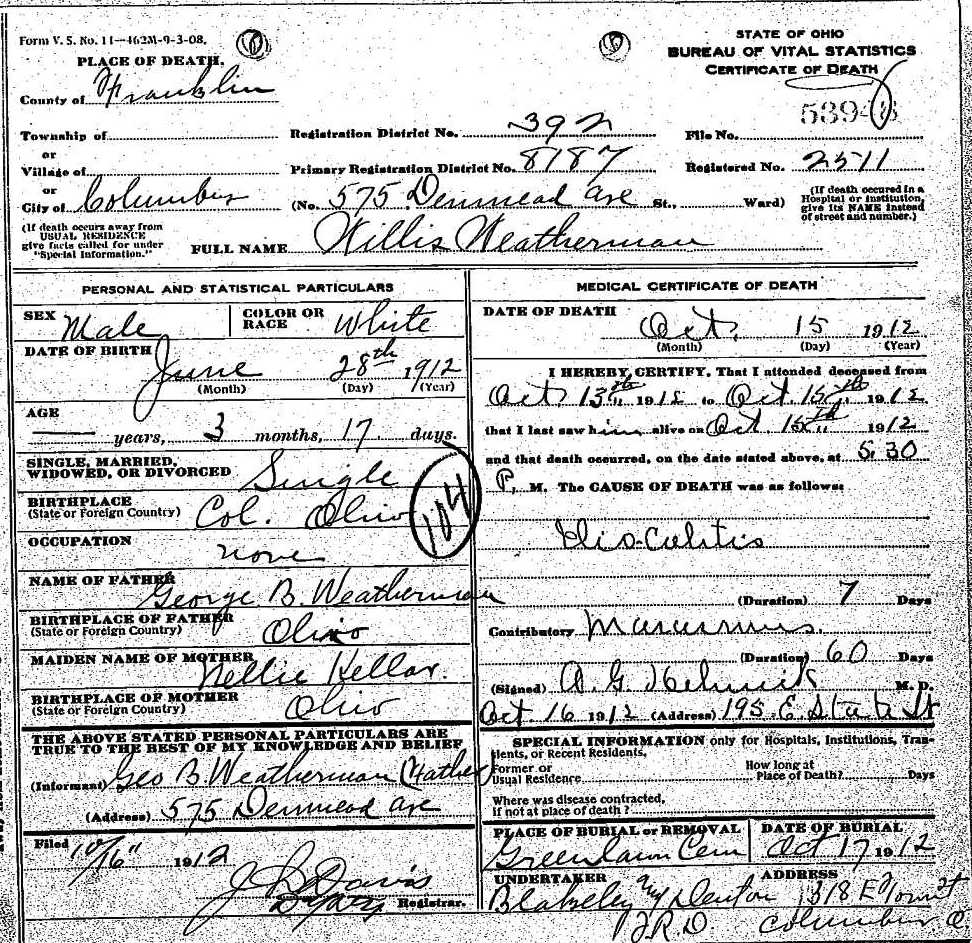 Form V. S. No. 11—462M-9-3-08.
STATE OF OHIO
BUREAU OF VITAL STATISTICS
CERTIFICATE OF DEATH
PLACE OF DEATH.
County of Franklin
Township of
Registration District No. 392
File No.
or
Village of
Primary Registration District No. 8187
Registered No. 2511
or
City of Columbus
(No. 575 Denmead Ave St., Ward)
(If death occured in a Hospital or institution, give its NAME instead of street and number.)
(If death occurs away from USUAL RESIDENCE give facts called for under "Special Information.")
FULL NAME Willis Weatherman
PERSONAL AND STATISTICAL PARTICULARS
SEX Male
COLOR OR RACE White
DATE OF BIRTH June 28th 1912
(Month) (Day) (Year)
AGE
— years, 3 months, 17 days.
SINGLE, MARRIED, WIDOWED, OR DIVORCED Single
BIRTHPLACE (State or Foreign Country) Col. Ohio
104
OCCUPATION none
NAME OF FATHER George B. Weatherman
BIRTHPLACE OF FATHER (State or Foreign Country) Ohio
MAIDEN NAME OF MOTHER Nellie Kellar.
BIRTHPLACE OF MOTHER (State or Foreign Country) Ohio
THE ABOVE STATED PERSONAL PARTICULARS ARE
TRUE TO THE BEST OF MY KNOWLEDGE AND BELIEF
(Informant) Geo B. Weatherman (Father)
(Address) 575 Denmead Ave
Filed 10/16" 1912
J B Davis
Registrar.
MEDICAL CERTIFICATE OF DEATH
DATE OF DEATH
Oct. 15 1912
(Month) (Day) (Year)
I HEREBY CERTIFY, That I attended deceased from
Oct 13th 1912 to Oct. 15th 1912
that I last saw him alive on Oct. 15th 1912
and that death occurred, on the date stated above, at 5.30
P. M. The CAUSE OF DEATH was as follows:
Ilio-Colitis
(Duration) 7 Days
Contributory Marasmus.
(Duration) 60 Days
(Signed) A. G. Helmick M. D.
Oct. 16 1912 (Address) 195 E. State St
SPECIAL INFORMATION only for Hospitals, Institutions, Transients, or Recent Residents.
Former or Usual Residence
How long at Place of Death? Days
Where was disease contracted, if not at place of death?
PLACE OF BURIAL or REMOVAL
Greenlawn Cem
DATE OF BURIAL
Oct 17 1912
UNDERTAKER
ADDRESS
Blakeley Denton 1318 E
F.R.D. Columbus O.